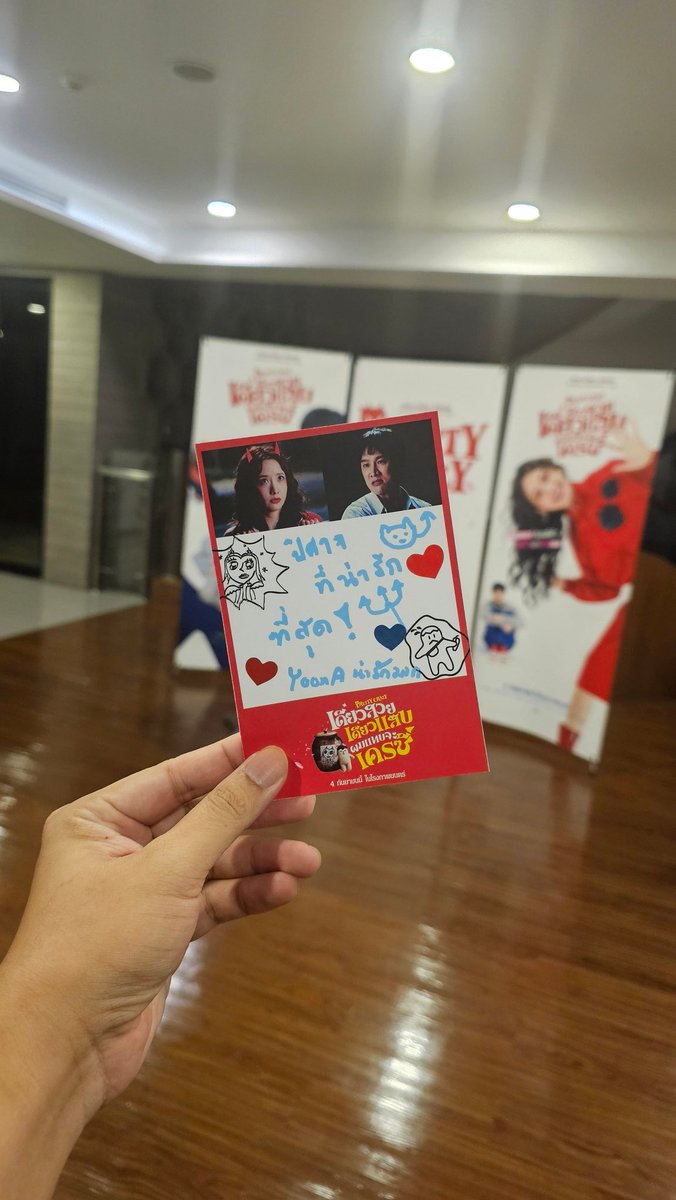 ปีศาจ
ที่น่ารัก
ที่สุด!
YoonA น่ารักมาก
PRETTY CRAZY
เดี๋ยวสวย
เดี๋ยวแสบ
ผมแทบจะ
เครซี่
4 กันยายนนี้ ในโรงภาพยนตร์